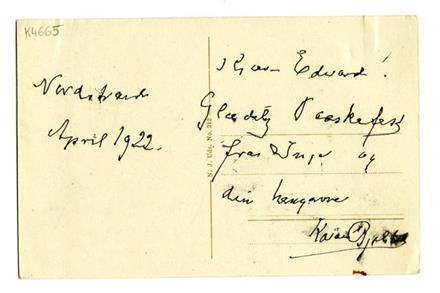 K4665
Nordstrand
April 1922.
N. J. Udg. No. 212
Kjære Edvard!
Gledelig Paaskefest
fra Inga og
din hengivne